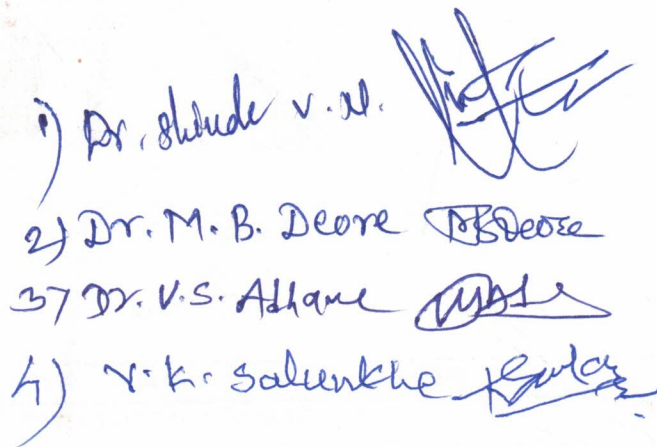 1) Dr. Shinde V. N.
2) Dr. M. B. Deore MBDeore
3) Dr. V.S. Adhave
4) V. K. Salunkhe